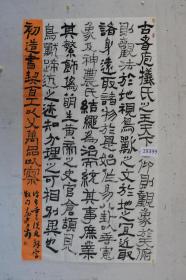 古者庖犧氏之王天下仰則觀象於天俯
則觀法於地視鳥獸之文於地之宜近取
諸身遠取諸物於是始作易八卦以垂憲
象及神農氏結繩為治而統其事庶業
其繁飾偽萌生黃帝之史官倉頡見
鳥獸蹄迒之迹知分理之可相別異也
初造書契百工以乂萬品以察